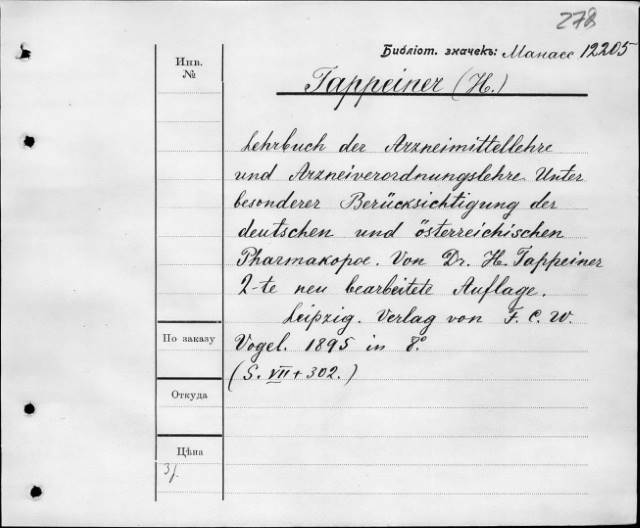 278
Библіот. значекъ: Манасс 12205
Инв.
№
Tappeiner (H.)
Lehrbuch der Arzneimittellehre
und Arzneiverordnungslehre Unter
besonderer Berücksichtigung der
deutschen und österreichischen
Pharmakopoe. Von Dr. H. Tappeiner
2-te neu bearbeitete Auflage.
Leipzig. Verlag von F. C. W.
По заказу
Vogel. 1895 in 8°
(S. VII + 302.)
Откуда
Цѣна
3/.